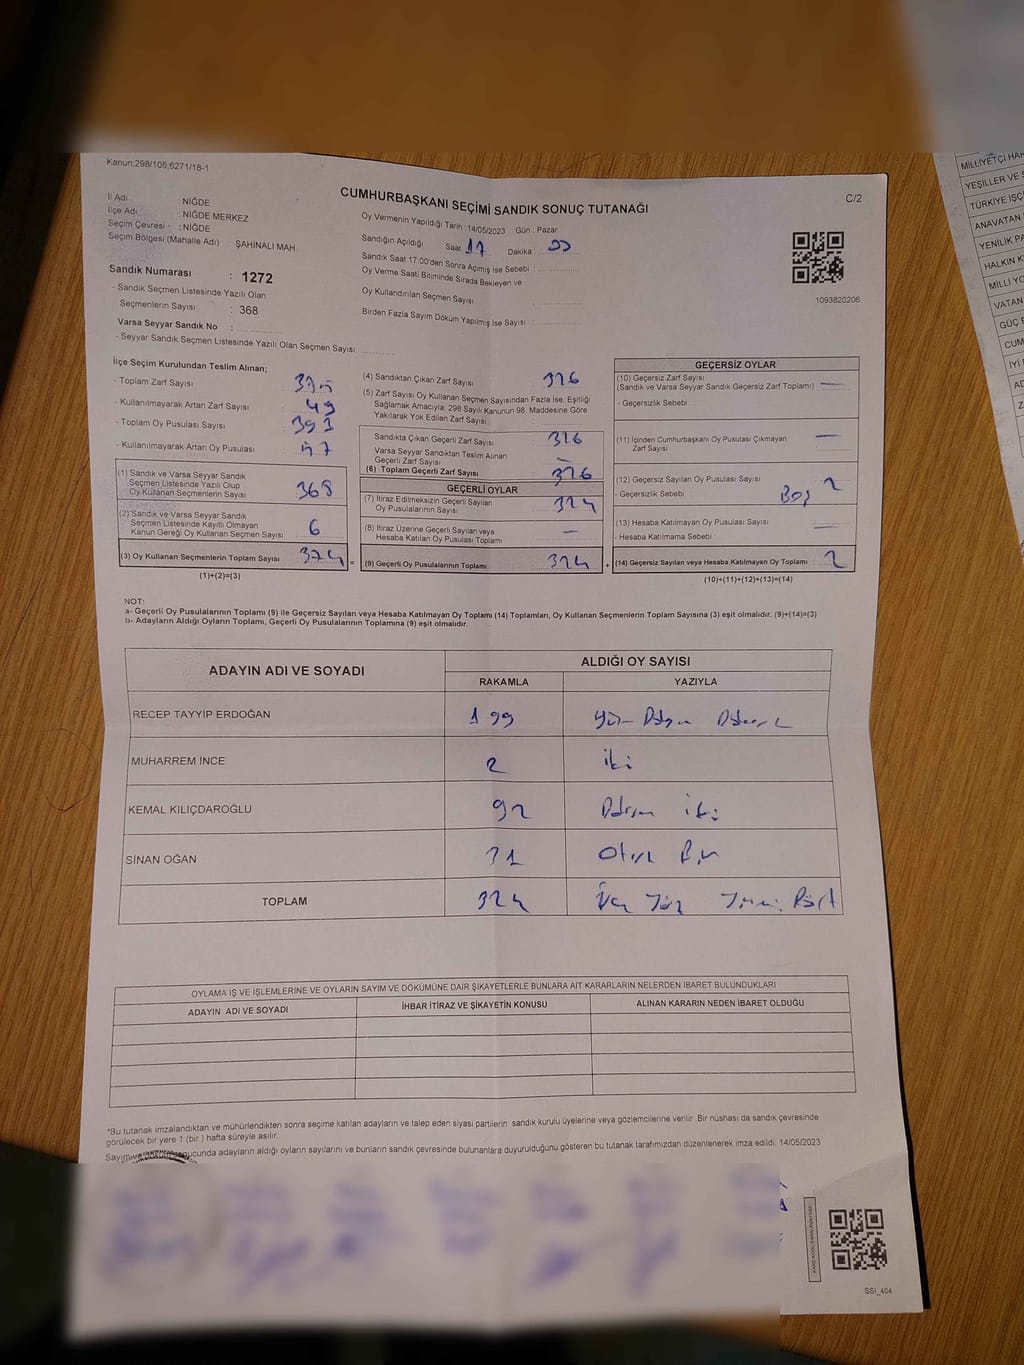 Kanun:298/105,6271/18-1
CUMHURBAŞKANI SEÇİMİ SANDIK SONUÇ TUTANAĞI
C/2
İl Adı : NİĞDE
İlçe Adı : NİĞDE MERKEZ
Seçim Çevresi : NİĞDE
Seçim Bölgesi (Mahalle Adı) ŞAHİNALİ MAH.
Sandık Numarası : 1272
- Sandık Seçmen Listesinde Yazılı Olan
Seçmenlerin Sayısı : 368
Varsa Seyyar Sandık No :
- Seyyar Sandık Seçmen Listesinde Yazılı Olan Seçmen Sayısı:
Oy Vermenin Yapıldığı Tarih :14/05/2023 Gün : Pazar
Sandığın Açıldığı Saat 17 Dakika :
Sandık Saat 17:00'den Sonra Açımış İse Sebebi :
Oy Verme Saati Bitiminde Sırada Bekleyen ve
Oy Kullandırılan Seçmen Sayısı
Birden Fazla Sayım Döküm Yapılmış İse Sayısı :
1093820206
İlçe Seçim Kurulundan Teslim Alınan;
- Toplam Zarf Sayısı
- Kullanılmayarak Artan Zarf Sayısı : 49
- Toplam Oy Pusulası Sayısı 391
- Kullanılmayarak Artan Oy Pusulası
(1) Sandık ve Varsa Seyyar Sandık
Seçmen Listesinde Yazılı Olup
Oy Kullanan Seçmenlerin Sayısı 368
(2) Sandık ve Varsa Seyyar Sandık
Seçmen Listesinde Kayıtlı Olmayan
Kanun Gereği Oy Kullanan Seçmen Sayısı 6
(3) Oy Kullanan Seçmenlerin Toplam Sayısı 374 =
(1)+(2)=(3)
(4) Sandıktan Çıkan Zarf Sayısı 326
(5) Zarf Sayısı Oy Kullanan Seçmen Sayısından Fazla İse, Eşitliği
Sağlamak Amacıyla; 298 Sayılı Kanunun 98. Maddesine Göre
Yakılarak Yok Edilen Zarf Sayısı
Sandıkta Çıkan Geçerli Zarf Sayısı 326
Varsa Seyyar Sandıktan Teslim Alınan
Geçerli Zarf Sayısı –
(6) Toplam Geçerli Zarf Sayısı 326
GEÇERLİ OYLAR
(7) İtiraz Edilmeksizin Geçerli Sayılan
Oy Pusulalarının Sayısı 324
(8) İtiraz Üzerine Geçerli Sayılan veya
Hesaba Katılan Oy Pusulası Toplamı –
(9) Geçerli Oy Pusulalarının Toplamı 324 +
GEÇERSİZ OYLAR
(10) Geçersiz Zarf Sayısı
(Sandık ve Varsa Seyyar Sandık Geçersiz Zarf Toplamı) –
- Geçersizlik Sebebi :
(11) İçinden Cumhurbaşkanı Oy Pusulası Çıkmayan
Zarf Sayısı –
(12) Geçersiz Sayılan Oy Pusulası Sayısı 2
- Geçersizlik Sebebi Boş
(13) Hesaba Katılmayan Oy Pusulası Sayısı –
- Hesaba Katılmama Sebebi :
(14) Geçersiz Sayılan veya Hesaba Katılmayan Oy Toplamı 2
(10)+(11)+(12)+(13)=(14)
NOT:
a- Geçerli Oy Pusulalarının Toplamı (9) ile Geçersiz Sayılan veya Hesaba Katılmayan Oy Toplamı (14) Toplamları, Oy Kullanan Seçmenlerin Toplam Sayısına (3) eşit olmalıdır. (9)+(14)=(3)
b- Adayların Aldığı Oyların Toplamı, Geçerli Oy Pusulalarının Toplamına (9) eşit olmalıdır.
ADAYIN ADI VE SOYADI ALDIĞI OY SAYISI
RAKAMLA YAZIYLA
RECEP TAYYİP ERDOĞAN 199 Yüz Doksan Dokuz
MUHARREM İNCE 2 iki
KEMAL KILIÇDAROĞLU 92 Doksan iki
SİNAN OĞAN 31 Otuz Bir
TOPLAM 324 Üç Yüz Yirmi Dört
OYLAMA İŞ VE İŞLEMLERİNE VE OYLARIN SAYIM VE DÖKÜMÜNE DAİR ŞİKAYETLERLE BUNLARA AİT KARARLARIN NELERDEN İBARET BULUNDUKLARI
ADAYIN ADI VE SOYADI İHBAR İTİRAZ VE ŞİKAYETİN KONUSU ALINAN KARARIN NEDEN İBARET OLDUĞU
*Bu tutanak imzalandıktan ve mühürlendikten sonra seçime katılan adayların ve talep eden siyasi partilerin sandık kurulu üyelerine veya gözlemcilerine verilir. Bir nüshası da sandık çevresinde
görülecek bir yere 1 (bir ) hafta süreyle asılır.
Sayım ve sonucunda adayların aldığı oyların sayılarını ve bunların sandık çevresinde bulunanlara duyurulduğunu gösteren bu tutanak tarafımızdan düzenlenerek imza edildi. 14/05/2023
SSI_404
MİLLİYETÇİ HA
YEŞİLLER VE S
TÜRKİYE İŞÇ
ANAVATAN
YENİLİK PA
HALKIN K
MİLLİ YO
VATAN
GÜÇ B
CUM
İYİ
AD
Z